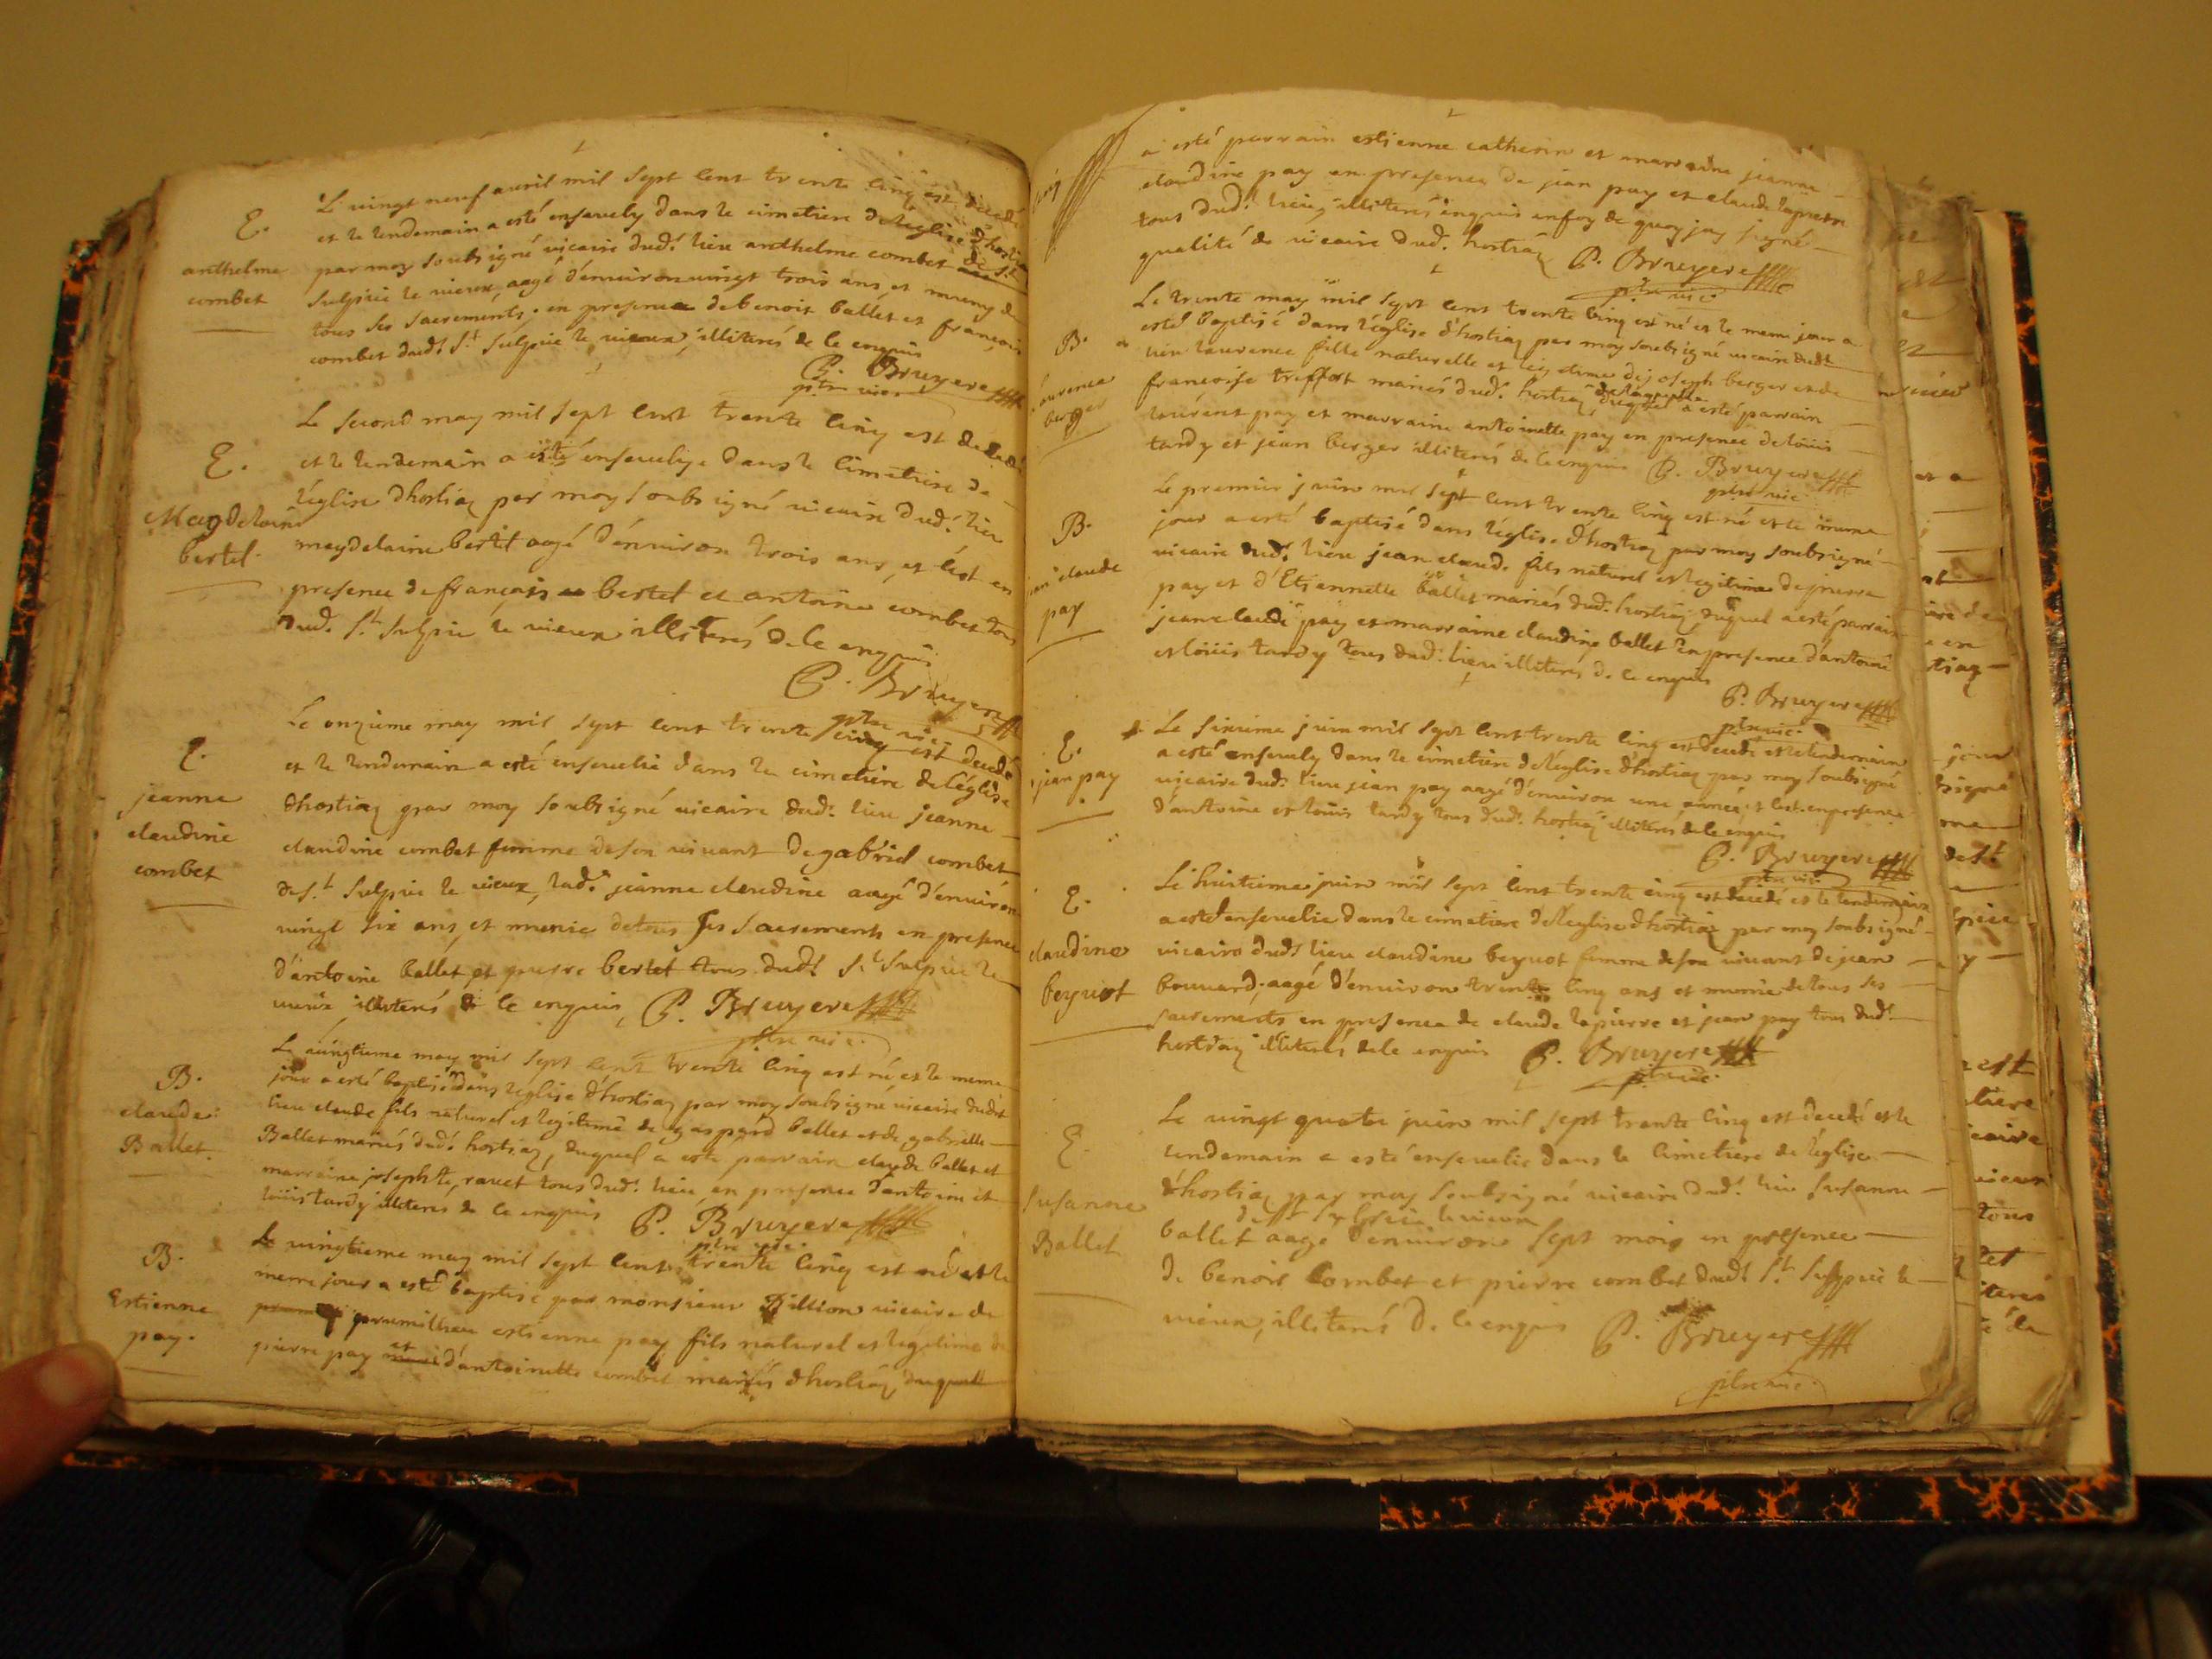 Le vingt neuf avril mil sept cent trente cinq est decedé
et le lendemain a esté ensevely dans le cimetiere de leglise d'hostiaz
E.
anthelme
combet
par moy soubsigné vicaire dud.t lieu anthelme combet de St.
Sulpice le vieux, aagé d'environ vingt trois ans, et muny de
tous ses sacrements, en presence de benoit ballet et françois
combet dud.t S.t Sulpice le vieux, illiterés de ce enquis
P. Bruyere
ptre vic.
Le second may mil sept cent trente cinq est decedé
et le lendemain a esté ensevelye dans le cimetiere de
E.
Magdelaine
bertet
l'église d'hostiaz par moy soubsigné vicaire dud.t lieu
magdelaine bertet aagé d'environ trois ans, et c'est en
presence de françois bertet et antoine combet tous
dud. S.t Sulpice le vieux illiterés de ce enquis
P. Bruyere
ptre vic.
Le onzieme may mil sept cent trente cinq est decedé
et le lendemain a esté ensevelie dans le cimetiere de l'église
E.
jeanne
claudine
combet
d'hostiaz par moy soubsigné vicaire dud.t lieu jeanne
claudine combet femme de son vivant de gabriel combet
de S.t Sulpice le vieux, lad.e jeanne claudine aagé d'environ
vingt six ans, et munie de tous ses sacrements en presence
d'antoine ballet et pierre bertet tous dud.t S.t Sulpice le
vieux illiterés de ce enquis, P. Bruyere
ptre vic.
Le vingtieme may mil sept cent trente cinq est né et le meme
B.
claude
Ballet.
jour a esté baptisé dans l'église d'hostiaz par moy soubsigné vicaire dudit
lieu claude fils naturel et legitime de gaspard ballet et de gabrielle
Ballet mariés dud.t hostiaz, duquel a esté parrain claude ballet et
marraine josephte ravet tous dud.t lieu, en presence d'antoine et
loüis tardy illiterés de ce enquis P. Bruyere
ptre vic.
Le vingtieme may mil sept cent trente cinq est né et le
B.
Estienne
pay.
meme jour a esté baptisé par monsieur Billion vicaire de
prumillieu estienne pay fils naturel et legitime de
pierre pay et d'antoinette combet mariés d'hostiaz, duquel
a esté parrain estienne catherin et marraine jeanne
claudine pay en presence de jean pay et claude lapierre
tous dud.t lieu, illiterés enquis en foy de quoy jay signé
qualité de vicaire dud. hostiaz P. Bruyere
ptre vic.
Le trente may mil sept cent trente cinq est né et le meme jour a
B.
laurence
berger
esté baptisé dans l'église d'hostiaz par moy soubsigné vicaire dudt
lieu laurence fille naturelle et legitime de joseph berger et de
françoise treffort mariés dud.t hostiaz, duquel de laquelle a esté parrain
laurent pay et marraine antoinette pay en presence de loüis
tardy et jean berger illiterés de ce enquis P. Bruyere
ptre vic.
Le premier juin mil sept cent trente cinq est né et le meme
B.
jean claude
pay
jour a esté baptisé dans l'église d'hostiaz par moy soubsigné
vicaire dud.t lieu jean claude fils naturel et legitime de pierre
pay et d'Etiennette ballet mariés dud. hostiaz, duquel a esté parrain
jean claude pay et marraine claudine ballet en presence d'antoine
et loüis tardy tous dud.t lieu illiterés de ce enquis
P. Bruyere
ptre vic.
Le sixieme juin mil sept cent trente cinq est decedé et le lendemain
E.
jean pay
a esté ensevely dans le cimetiere de l'église d'hostiaz par moy soubsigné
vicaire dud.t lieu jean pay aagé d'environ une année, et c'est en presence
d'antoine et loüis tardy tous dud.t hostiaz illiterés de ce enquis
P. Bruyere
ptre vic.
Le huitieme juin mil sept cent trente cinq est decedé et le lendemain
E.
claudine
beyuot
a esté ensevelie dans le cimetiere de l'eglise d'hostiaz par moy soubsigné
vicaire dud.t lieu claudine beyuot femme de son vivant de jean
bouvard, aagé d'environ trente cinq ans et munie de tous ses
sacrements en presence de claude lapierre et jean pay tous dud.t
hostiaz illiterés de ce enquis P. Bruyere
ptre vic.
Le vingt quatre juin mil sept trente cinq est decedé et le
E.
Susanne
Ballet
lendemain a esté ensevelie dans le cimetiere de l'église
d'hostiaz par moy soubsigné vicaire dud.t lieu susanne
de St Sulpice le vieux
ballet aagé d'environ sept mois en presence
de benoit combet et pierre combet dud.t S.t Sulpice le
vieux, illiterés de ce enquis P. Bruyere
ptre vic.